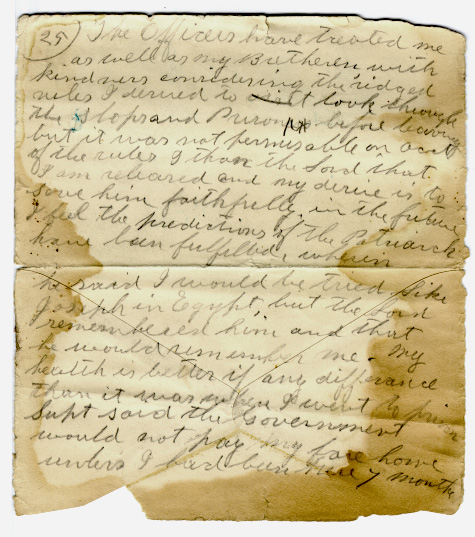 25 The Officers have treated me
as well as my Bretheren with
kindness considering the ridged
rules I desired to look through
the Shops and Prison before leaving
but it was not permisable on acct
of the rules I than the Lord that
I am released and my desire is to
save him faithfully. in the future
I feel the predictions of the Patriarch
have been fulfilled, wherein
he said I would be tried like
Joseph in Egypt, but the Lord
remembered him and that
he would remember me. My
health is better if any differance
than it was when I went to prison
Supt said the Government
would not pay my fare home
unless I had been here 7 months